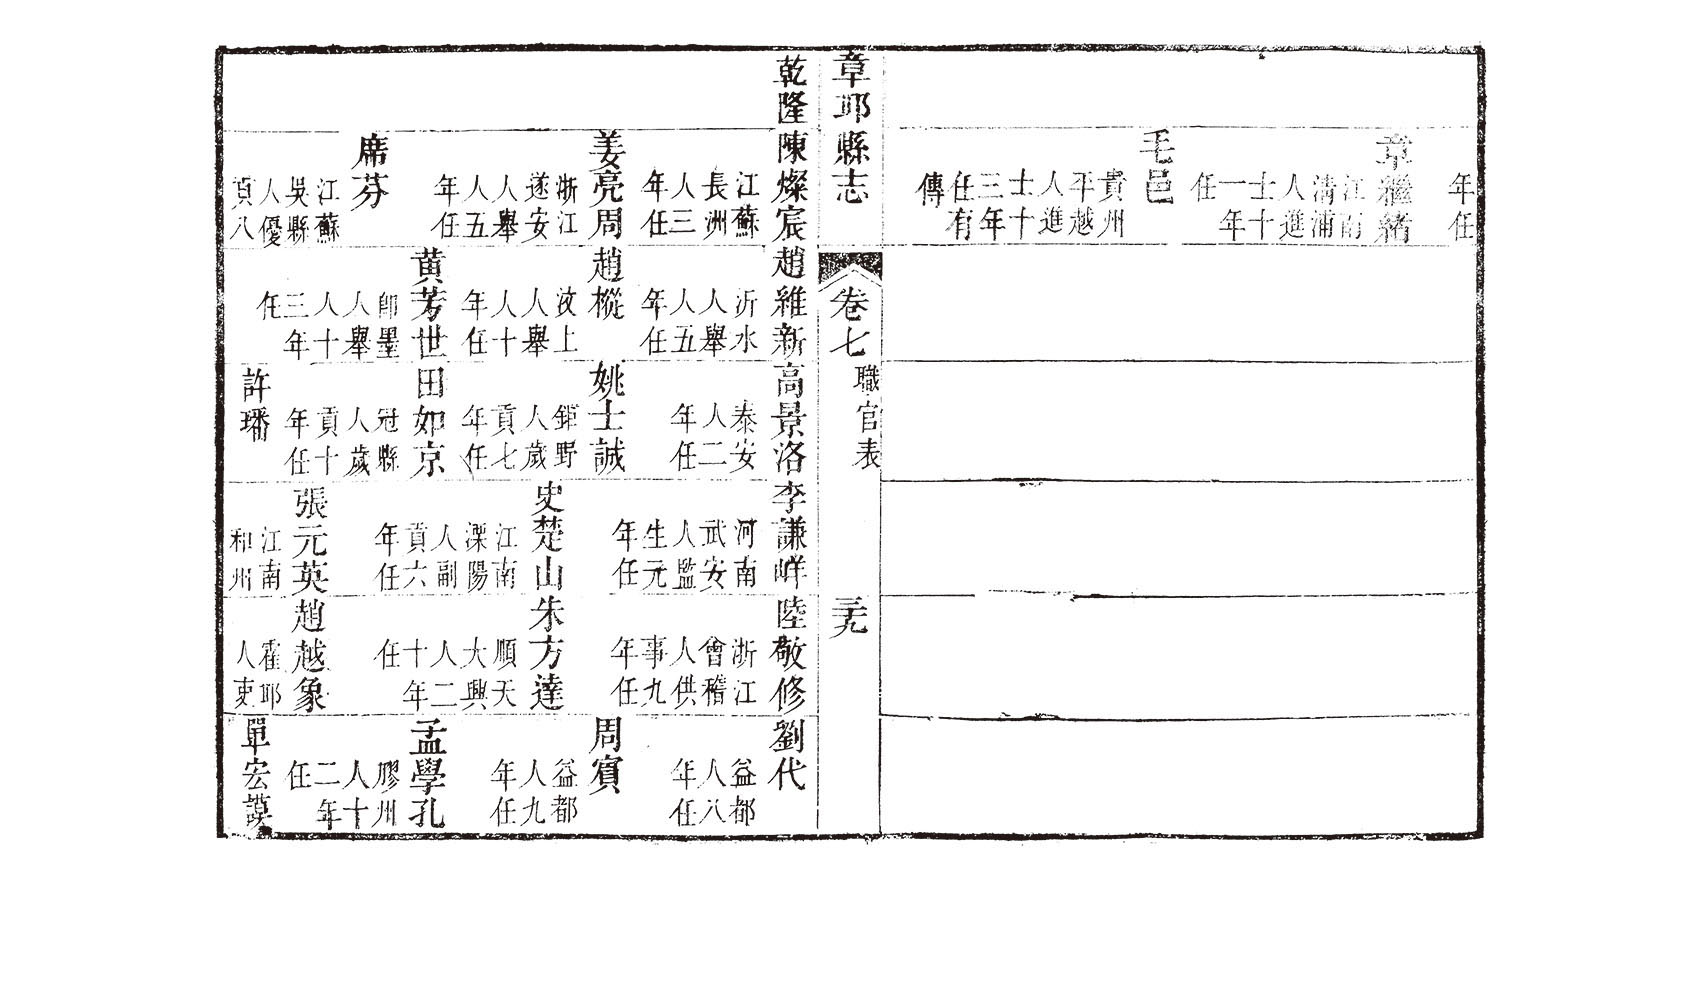 年任
章繼緒
江南
清浦
人進
士十
一年
任
毛邑
貴州
平越
人進
士十
三年
任有
傳
章邱縣志
卷七
職官表
三九
乾隆
陳燦宸
江蘇
長洲
人三
年任
姜亮周
浙江
遂安
人舉
人五
年任
席芬
江蘇
吳縣
人優
貢八
趙維新
沂水
人舉
人五
年任
趙樅
汶上
人舉
人十
年任
黃芳世
即墨
人舉
人十
三年
任
高景洛
泰安
人二
年任
姚士誠
鉅野
人歲
貢七
年任
田如京
冠縣
人歲
貢十
年任
許璠
李謙
河南
武安
人監
生元
年任
史楚山
江南
溧陽
人副
貢六
年任
張元英
江南
和州
陸敬修
浙江
會稽
人供
事九
年任
朱方達
順天
大興
人二
十年
任
趙越象
霍邱
人吏
劉代
益都
人八
年任
周賓
益都
人九
年任
孟學孔
膠州
人十
二年
任
單宏謨